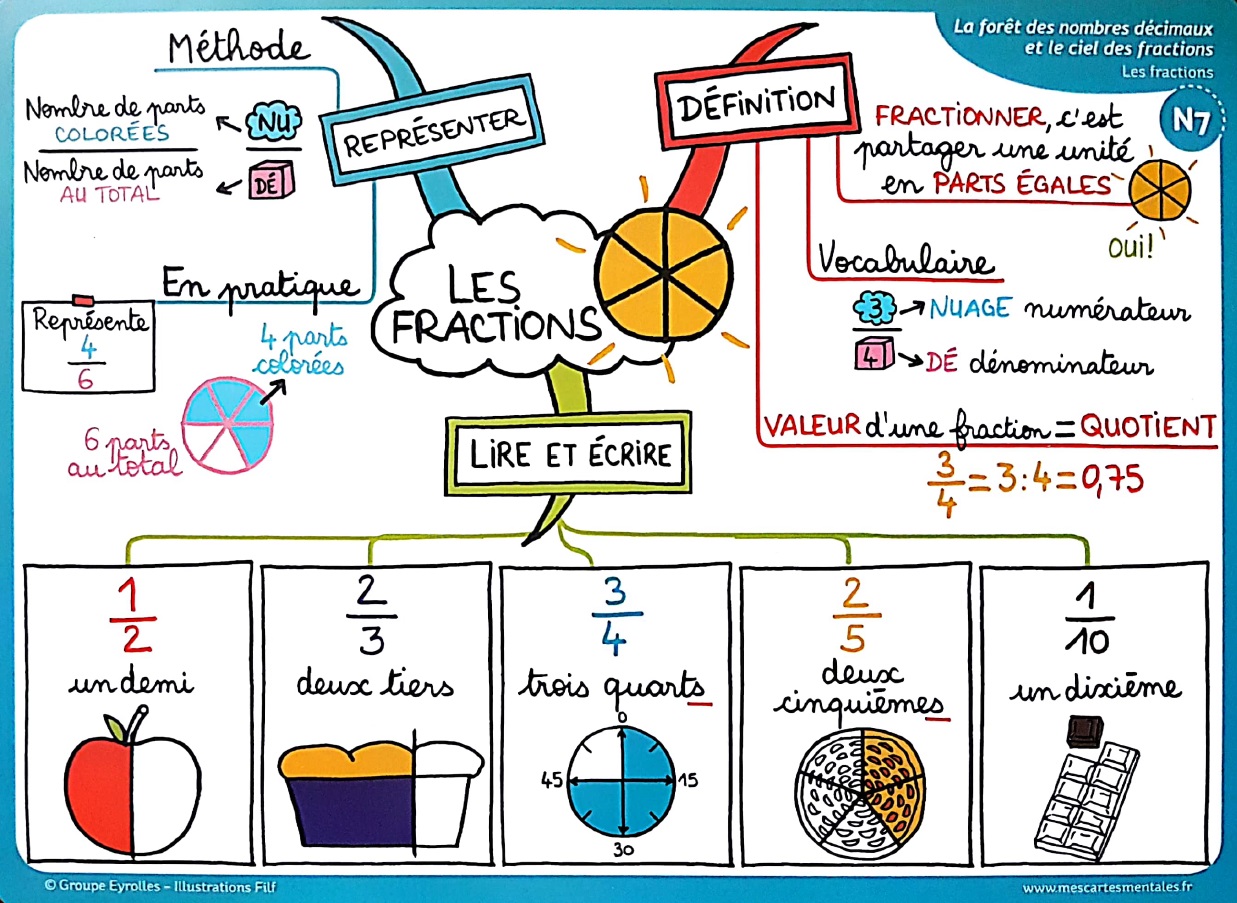 La forêt des nombres décimaux
et le ciel des fractions
Les fractions
N7
LES
FRACTIONS
DÉFINITION
FRACTIONNER, c'est
partager une unité
en PARTS ÉGALES
Oui!
Vocabulaire
3 → NUAGE numérateur
4 → DÉ dénominateur
VALEUR d'une fraction = QUOTIENT
3/4 = 3:4 = 0,75
REPRÉSENTER
Méthode
Nombre de parts
COLORÉES
NU
Nombre de parts
AU TOTAL
DÉ
En pratique
Représente
4
6
4 parts
colorées
6 parts
au total
LIRE ET ÉCRIRE
1
2
un demi
2
3
deux tiers
3
4
trois quarts
0
15
30
45
2
5
deux
cinquièmes
1
10
un dixième
© Groupe Eyrolles – Illustrations Filf
www.mescartesmentales.fr